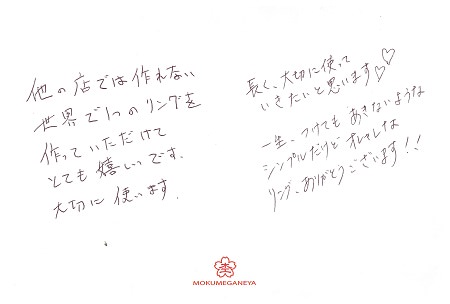 他の店では作れない
世界で1つのリングを
作っていただけて
とても嬉しいです.
大切に使います.
長く、大切に使って
いきたいと思います♡♡
一生、つけても あきないような
シンプルだけど オシャレな
リング、ありがとうございます!!
MOKUMEGANEYA